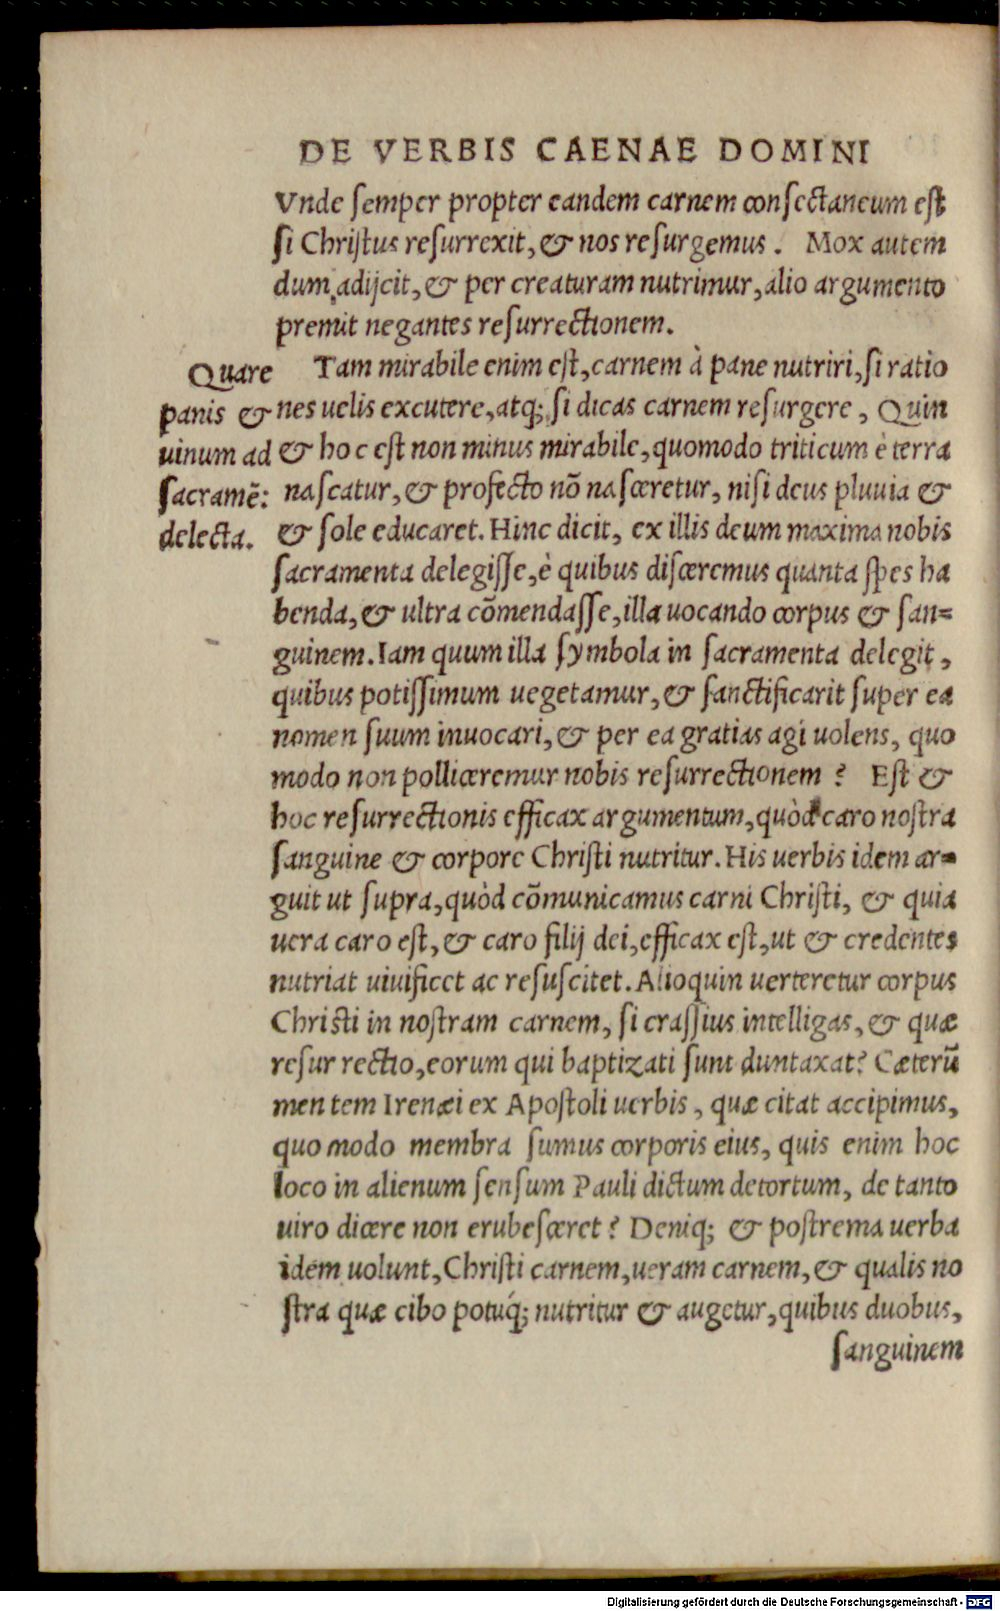 DE VERBIS CAENAE DOMINI
Vnde semper propter eandem carnem consectaneum est
si Christus resurrexit, & nos resurgemus. Mox autem
dum adijcit, & per creaturam nutrimur, alio argumento
premit negantes resurrectionem.
Tam mirabile enim est, carnem à pane nutriri, si ratio
nes uelis excutere, atq; si dicas carnem resurgere, Quin
& hoc est non minus mirabile, quomodo triticum è terra
nascatur, & profecto nõ nasceretur, nisi deus pluuia &
& sole educaret. Hinc dicit, ex illis deum maxima nobis
sacramenta delegisse, è quibus disceremus quanta spes ha
benda, & ultra cõmendasse, illa uocando corpus & san=
guinem. Iam quum illa symbola in sacramenta delegit,
quibus potissimum uegetamur, & sanctificarit super ea
nomen suum inuocari, & per ea gratias agi uolens, quo
modo non polliceremur nobis resurrectionem? Est &
hoc resurrectionis efficax argumentum, quòd caro nostra
sanguine & corpore Christi nutritur. His uerbis idem ar=
guit ut supra, quòd cõmunicamus carni Christi, & quia
uera caro est, & caro filij dei, efficax est, ut & credentes
nutriat uiuificet ac resuscitet. Alioquin uerteretur corpus
Christi in nostram carnem, si crassius intelligas, & quæ
resurrectio, eorum qui baptizati sunt duntaxat? Cæterũ
mentem Irenæi ex Apostoli uerbis, quæ citat accipimus,
quomodo membra sumus corporis eius, quis enim hoc
loco in alienum sensum Pauli dictum detortum, de tanto
uiro dicere non erubesceret? Deniq; & postrema uerba
idem uolunt, Christi carnem, ueram carnem, & qualis no
stra quæ cibo potúq; nutritur & augetur, quibus duobus,
sanguinem
Quare
panis &
uinum ad
sacramẽ:
delecta.
Digitalisierung gefördert durch die Deutsche Forschungsgemeinschaft - DFG